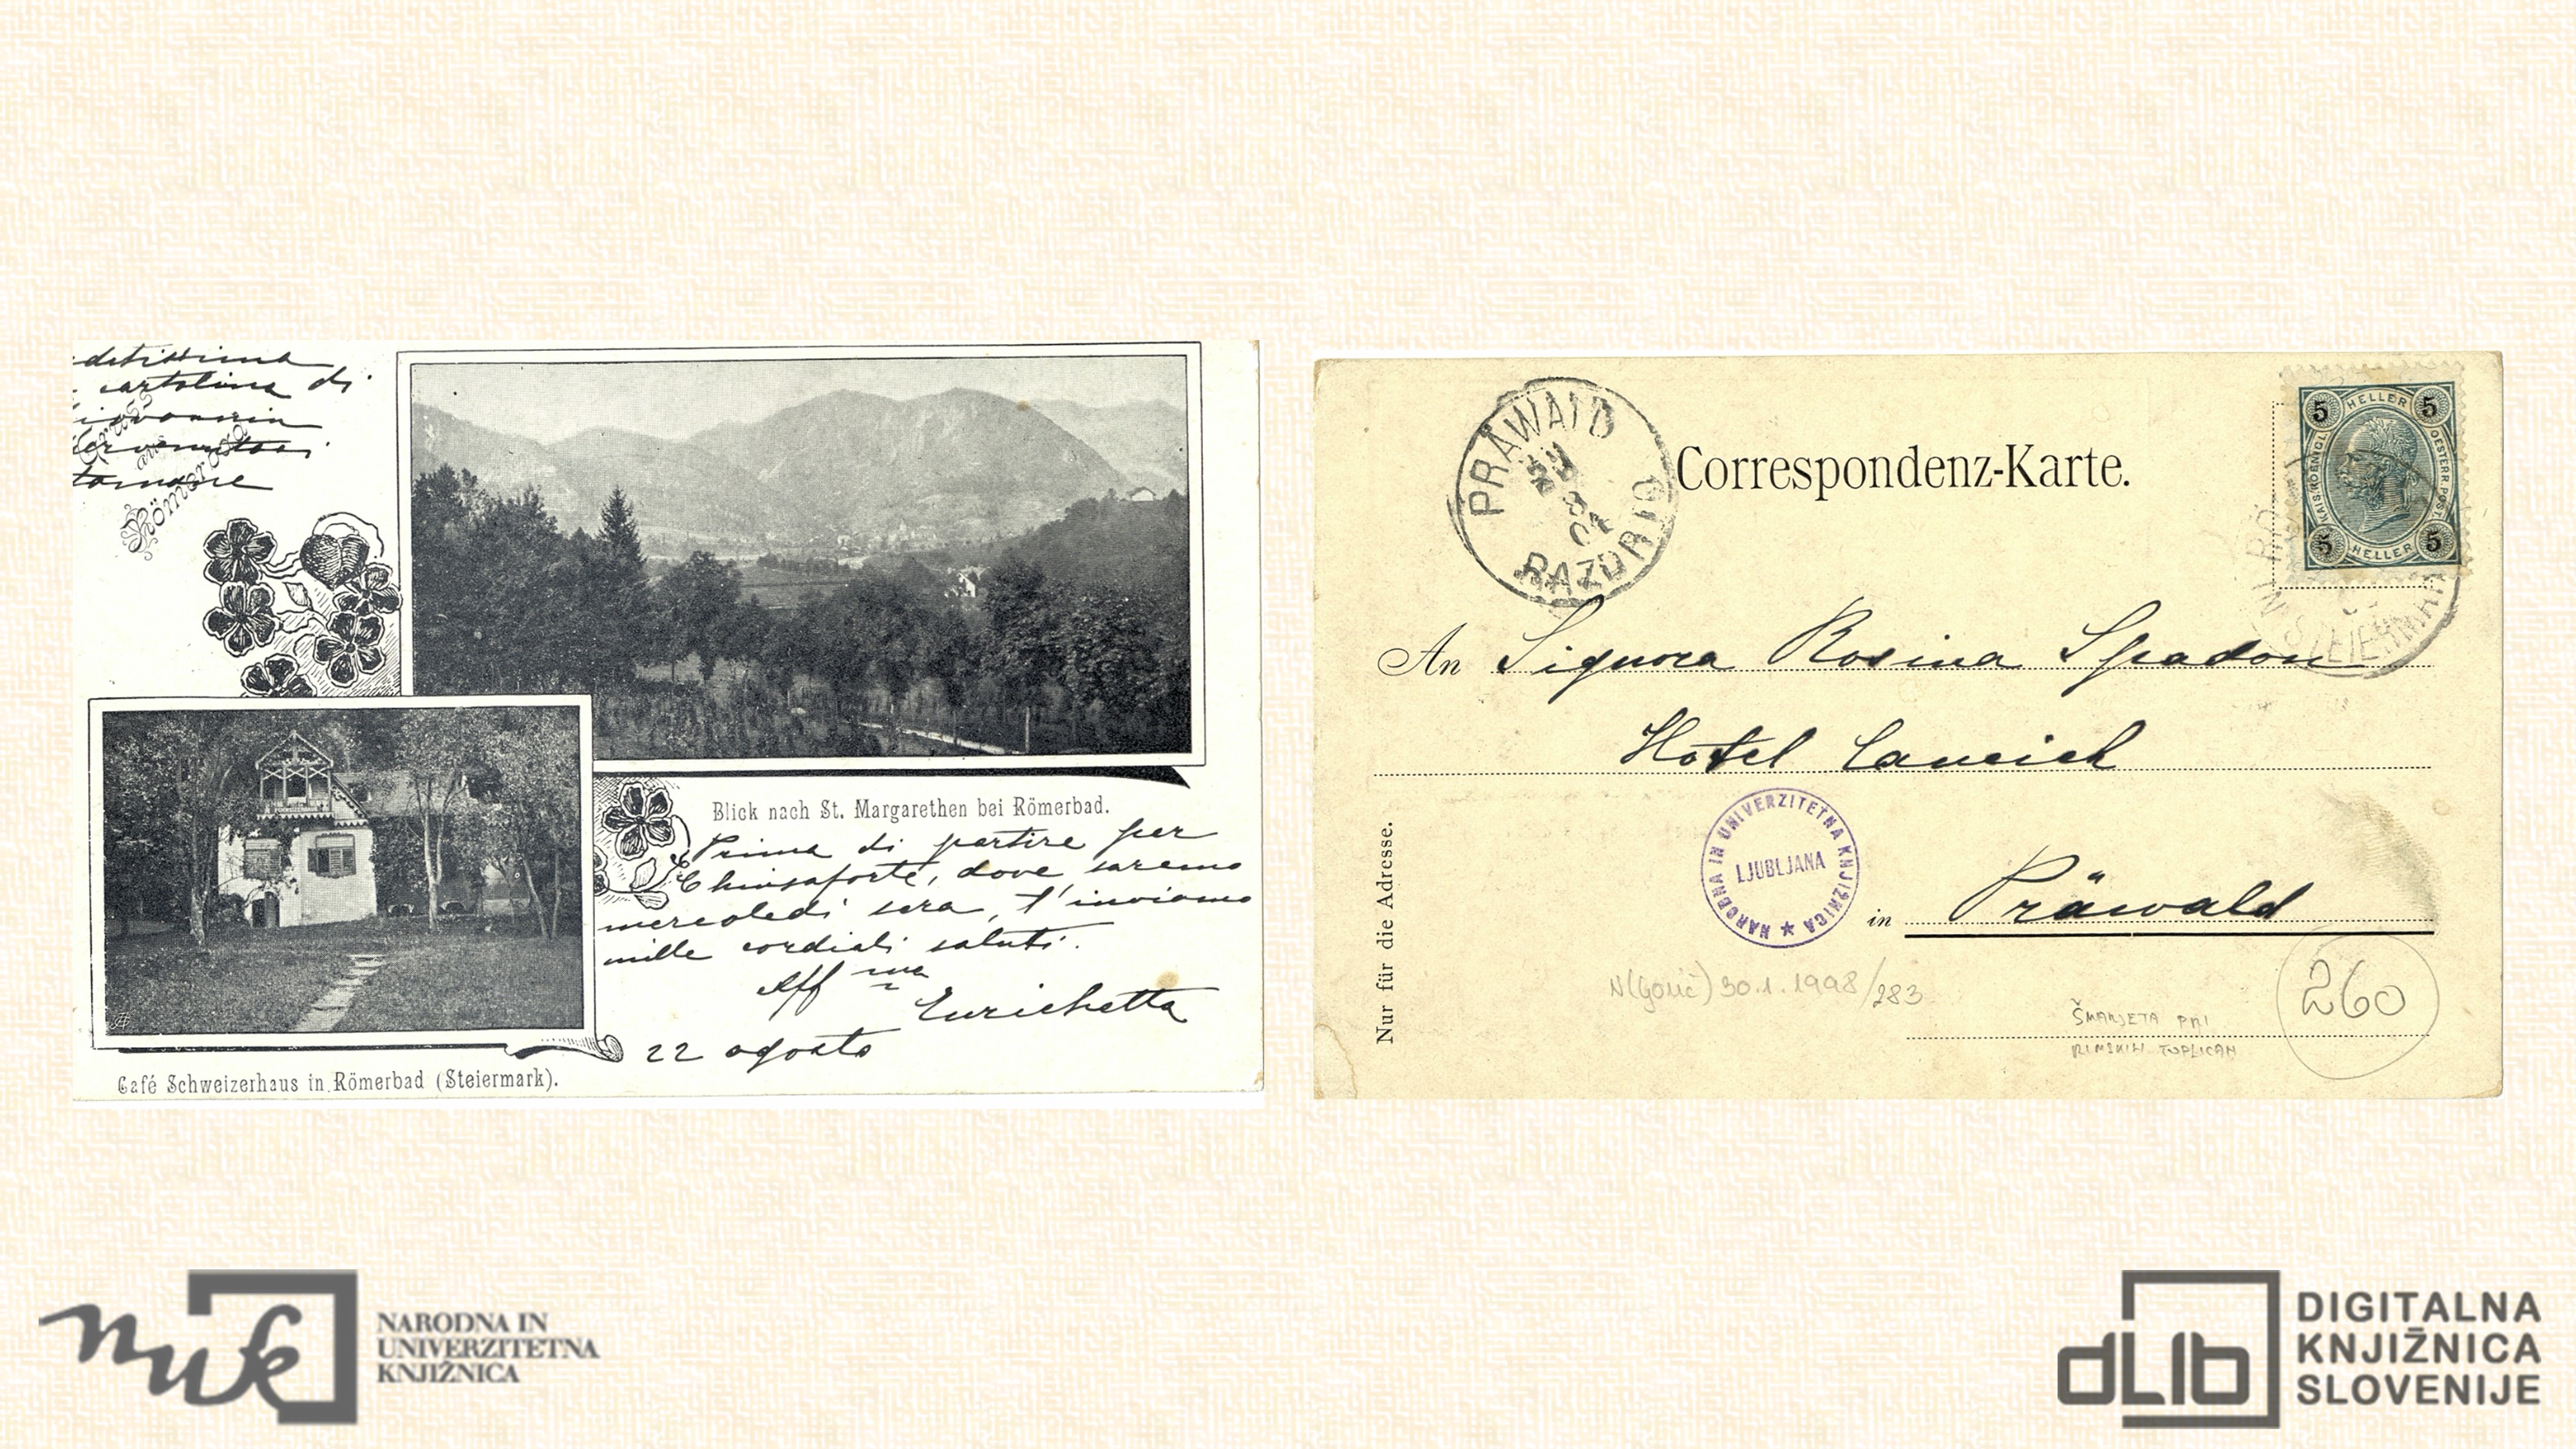 cartolina di
tornare
Gruss
aus
Römerbad
Blick nach St. Margarethen bei Römerbad.
Prima di partire per
Chiusaforte, dove saremo
mercoledi sera, t'inviamo
mille cordiali saluti.
Aff ma
Enrichetta
22 agosto
Café Schweizerhaus in Römerbad (Steiermark).
PRÄWALD
8
RAZDRTO
Correspondenz-Karte.
5 HELLER 5
KAIS. KOENIGL. OESTERR. POST.
5 HELLER 5
STEIERMARK
An Signora Rosina Spadon
Hotel
NARODNA IN UNIVERZITETNA KNJIŽNICA
LJUBLJANA
in Präwald
Nur für die Adresse.
30.1.1998/283
ŠMARJETA PRI
RIMSKIH TOPLICAH
260
nuk
NARODNA IN
UNIVERZITETNA
KNJIŽNICA
dLib
DIGITALNA
KNJIŽNICA
SLOVENIJE